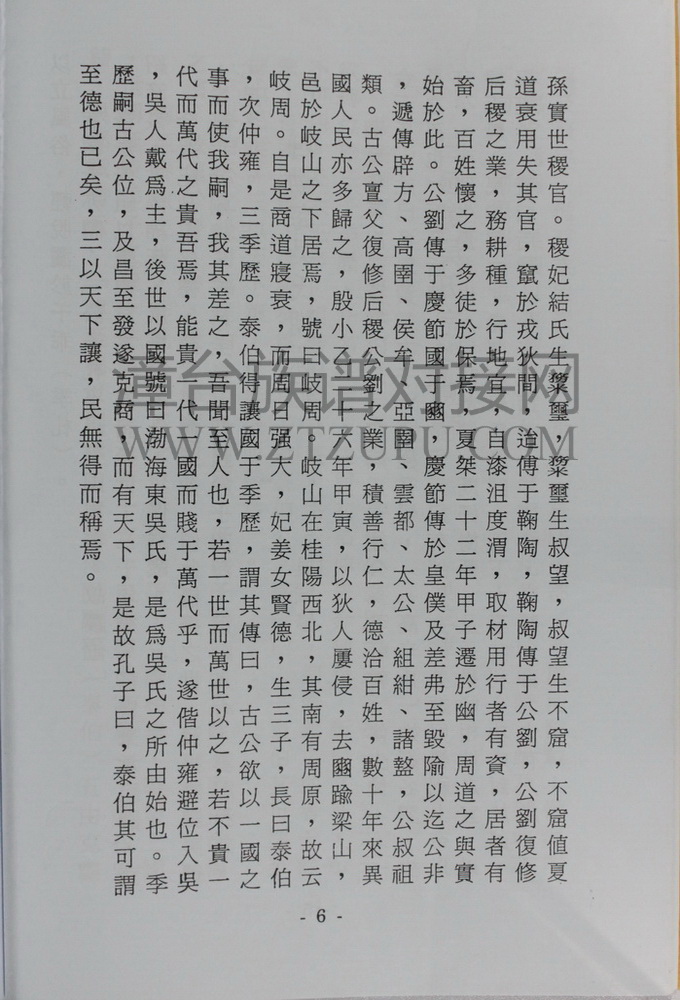 孫實世稷官。稷妃結氏生漦璽，漦璽生叔望，叔望生不窟，不窟值夏
道衰用失其官，竄於戎狄間，迨傳于鞠陶，鞠陶傳于公劉，公劉復修
后稷之業，務耕種，行地宜，自漆沮度渭，取材用行者有資，居者有
畜，百姓懷之，多徒於保焉，夏桀二十二年甲子遷於幽，周道之與實
始於此。公劉傳于慶節國于豳，慶節傳於皇僕及差弗至毀隃以迄公非
，遞傳辟方、高圉、侯牟、亞圉、雲都、太公、組紺、諸盩，公叔祖
類。古公亶父復修后稷公劉之業，積善行仁，德洽百姓，數十年來異
國人民亦多歸之，殷小乙二十六年甲寅，以狄人屢侵，去豳踰梁山，
邑於岐山之下居焉，號曰岐周。岐山在桂陽西北，其南有周原，故云
岐周。自是商道寢衰，而周日强大，妃姜女賢德，生三子，長曰泰伯
，次仲雍，三季歷。泰伯得讓國于季歷，謂其傳曰，古公欲以一國之
事而使我嗣，我其差之，吾聞至人也，若一世而萬世以之，若不貴一
代而萬代之貴吾焉，能貴一代一國而賤于萬代乎，遂偕仲雍避位入吳
，吳人戴爲主，後世以國號曰渤海東吳氏，是爲吳氏之所由始也。季
歷嗣古公位，及昌至發遂克商，而有天下，是故孔子曰，泰伯其可謂
至德也已矣，三以天下讓，民無得而稱焉。
- 6 -
漳台族谱对接网
WWW.ZTZUPU.COM